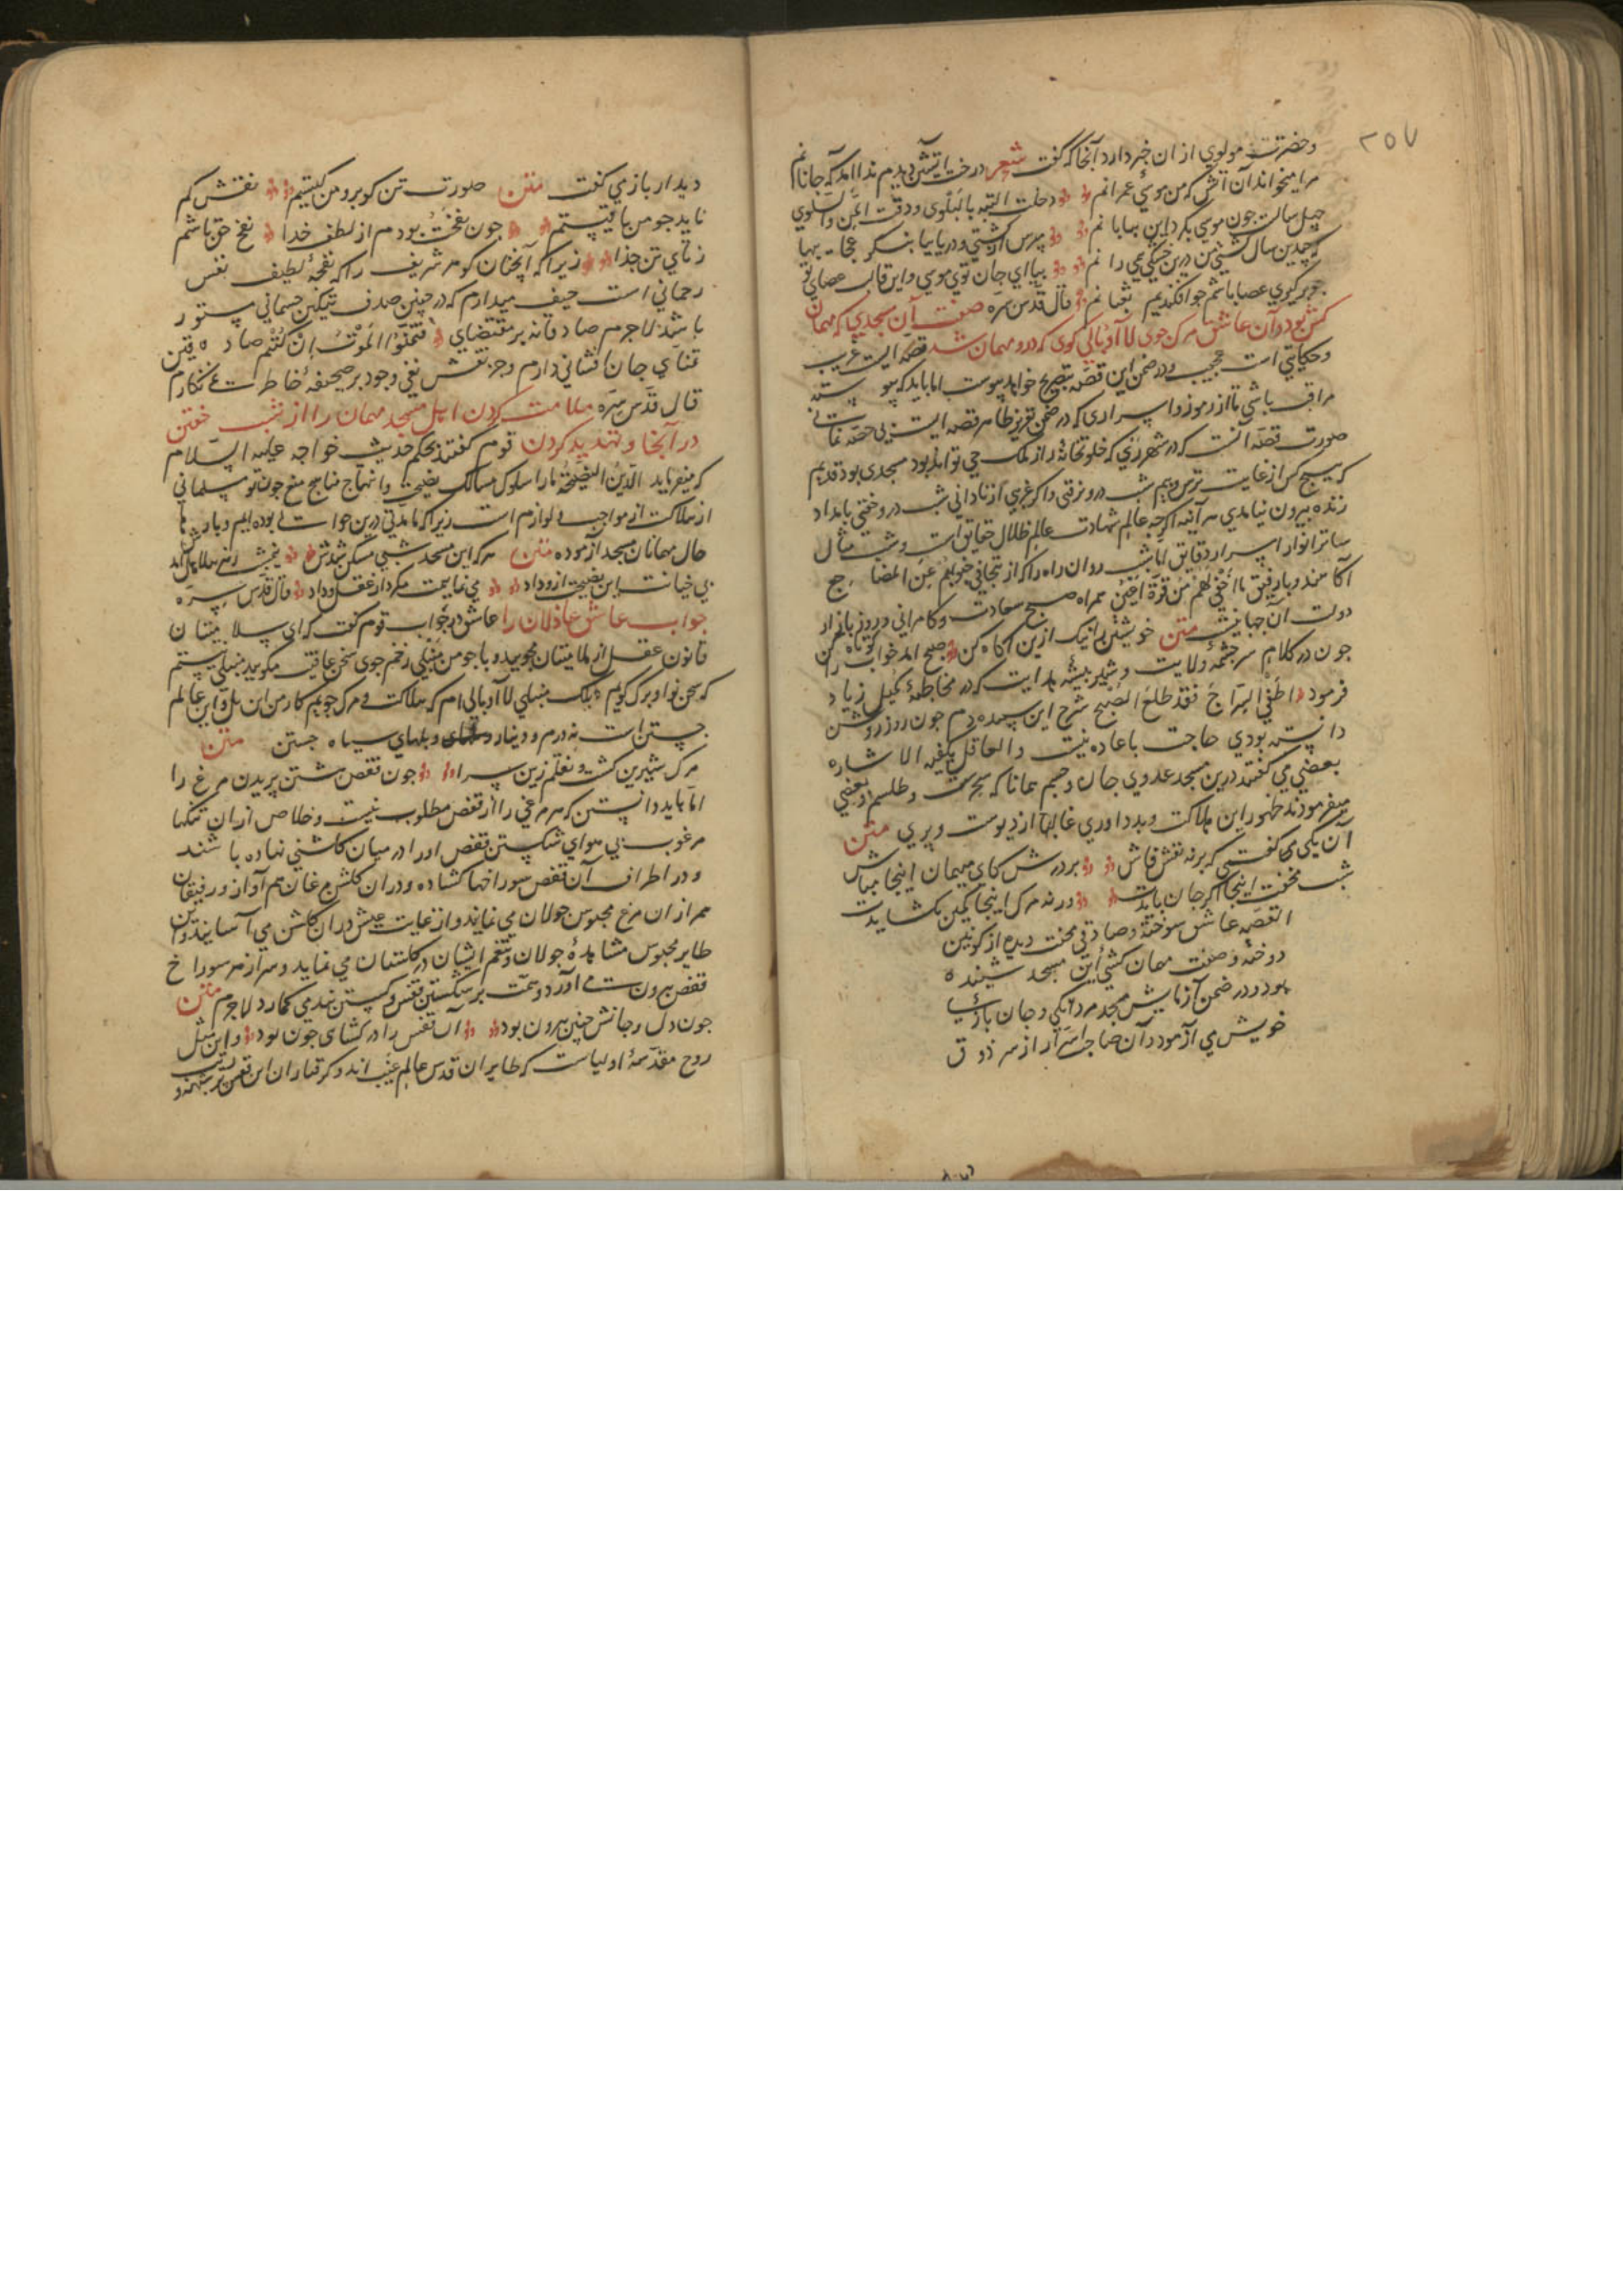 ۲۵۷
وحضرت مولوی از ان خبر دارد آنجا که گفت شعر درخت آتشین دیدم ندا آمد که جانانم
مرا میخواند آن آتش که من موسی عمرانم دخلت التیه بالبلوی وذقت المن والسلوی
چهل سالست چون موسی بگرد این بیابانم مپرس از کشتی و دریا بیا بنگر عجایبها
که چندین سال کشتی من درین خشکی همی رانم بیا ای جان توی موسی و این قالب عصای تو
چو برگیری عصا باشم چو افکندیم ثعبانم قال قدس سره صفت آن مسجدی که مهمان
کش بود و آن عاشق مرک جوی لا ابالی کوی که درو مهمان شد قصه ایست غریب
وحکایتی است عجیب و در ضمن این قصه بتصریح خواهد پیوست اما باید که پیوسته
مراقب باشی تا از رموز و اسراری که در ضمن تقریر ظاهر قصه ایست بی حصه نمانی
صورت قصه آنست که در شهر ری که خلوتخانه راز ملک حی تواند بود مسجدی بود قدیم
که هیچ کس از غایت ترس و بیم شب درو نرفتی و اگر غریبی از نادانی شب درو خفتی بامداد
زنده بیرون نیامدی هر آینه اگرچه عالم شهادت عالم ظلال حقایق است و شب مثال
ساتر انوار اسرار دقایق اما شب روان راه را که از تتجافی جنوبهم عن المضاجع
آگاهند و بارفیق ما اخفی لهم من قرة اعین همراه صبح سعادت و کامرانی و روز بازار
دولت آن جهانیست متن خویشتن را نیک ازین آگاه کن صبح آمد خواب را کوتاه کن
چون در کلام سرچشمه ولایت و شیر بیشه هدایت که در مخاطبه کمیل زیاد
فرمود اطفی السراج فقد طلع الصبح شرح این سپیده دم چون روز روشن
دانسته بودی حاجت باعاده نیست والعاقل یکفیه الاشاره
بعضی می گفتند درین مسجد عدوی جان و جسم همانا که سحرست و طلسم و بعضی
میفرمودند ظهور این هلاکت و بد داوری غالبا از دیوست و پری متن
آن یکی می گفتی که بر نه نقش فاش بر درش کای میهمان اینجا مباش
شب مخفت اینجا اگر جان بایدت ورنه مرک اینجا کمین بکشایدت
القصه عاشق سوخته و صادقی محنت دیده از کونین
دوخته وصفت مهمان کشی این مسجد شنیده
بود و در ضمن آزمایش مسجد مردانگی و جان بازی
خویش می آزمود و آن صاحب اسرار از سر ذوق
دیدار باز می گفت متن صورت تن گو برو من کیستم نقش کم
ناید چو من باقیستم چون نفخت بودم از لطف خدا نفخ حق باشم
ز نای تن جدا زیرا که آنچنان گوهر شریف را که نفخه لطیف نفس
رحمانی است حیف میدارم که در چنین صدف تیکین جسمانی مستور
باشد لاجرم صادقانه بر مقتضای فتمنوا الموت ان کنتم صادقین
تمنای جان افشانی دارم و جز نقش نفی وجود بر صحیفه خاطر نمی نگارم
قال قدس سره ملامت کردن اهل مسجد مهمان را از شب خفتن
در آنجا و تهدید کردن قوم گفتند بحکم حدیث خواجه علیه السلام
که میفرماید الدین النصیحة ما را سلوک مسالک نصیحت و انتهاج مناهج منع چون تو مسلمانی
از هلاکت از مواجب و لوازم است زیرا که ما مدتی درین حوالی بوده ایم و بارها
حال مهمانان مسجد آزموده متن هر که این مسجد شبی مسکن شدش نیمشب مرک هلاهل آمدش
بی خیانت این نصیحت از وداد می نمایمت مگرد از عقل و داد قال قدس سره
جواب عاشق عاذلان را عاشق در جواب قوم گفت که ای سلامتیان
قانون عقل از ملامتیان مجویید و با چو من منبلی زخم جوی سخن عافیت مگویید منبلی نیستم
که سخن نوا و برک گویم بلک منبلی لا ابالی ام که هلاکت و مرک جویم کار من این پل و این عالم
جستن است نه درم و دینار و بلهای سیاه جستن متن
مرک شیرین گشت و نقلم زین سرا چون قفص هشتن پریدن مرغ را
اما باید دانستن که هر مرغی را از قفص مطلوب نیست و خلاص از ان تنگنا
مرغوب بی هوای شکستن قفص او را در میان گلشنی نهاده باشند
و در اطراف آن قفص سوراخها گشاده و در ان گلشن مرغان هم آواز و رفیقان
همراز ان مرغ محبوس جولان می نمایند و از غایت عیش در ان گلشن می آسایند و آن
طایر محبوس مشاهده جولان و تنعم ایشان در گلستان می نماید و سر از هر سوراخ
قفص بیرون می آورد و همت بر شکستن قفس و گسستن بند می گمارد لاجرم متن
چون دل و جانش چنین بیرون بود آن قفس را در گشای چون بود و این تمثیل
روح مقدسه اولیاست که طایران قدس عالم غیب اند و گرفتاران این قفص